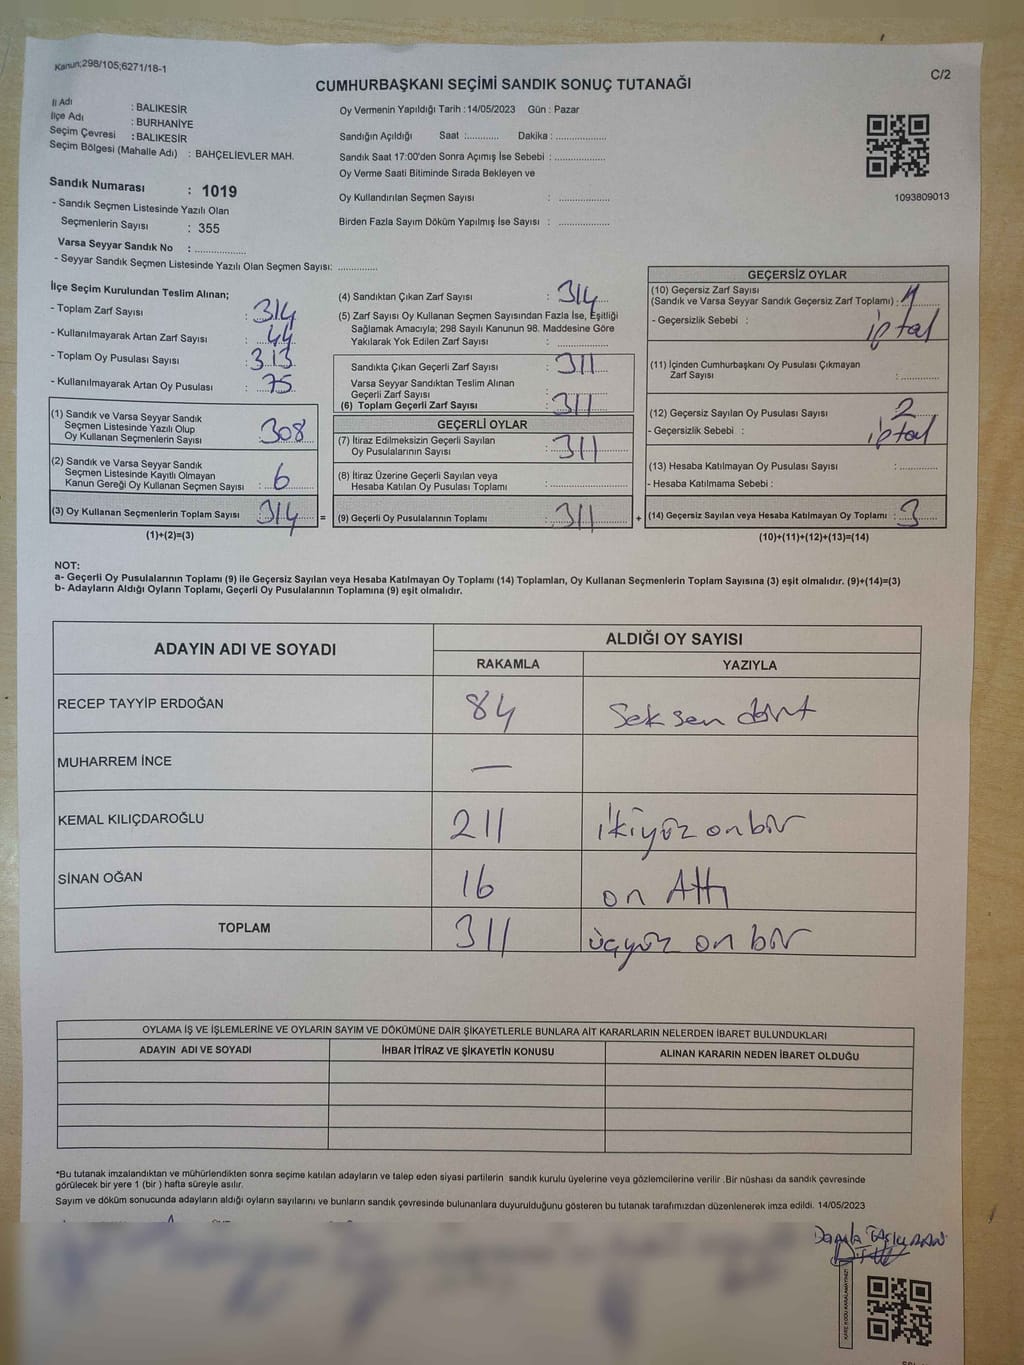 Kanun;298/105;6271/18-1
C/2
CUMHURBAŞKANI SEÇİMİ SANDIK SONUÇ TUTANAĞI
İl Adı : BALIKESİR
İlçe Adı : BURHANİYE
Seçim Çevresi : BALIKESİR
Seçim Bölgesi (Mahalle Adı) : BAHÇELİEVLER MAH.
Sandık Numarası : 1019
- Sandık Seçmen Listesinde Yazılı Olan
Seçmenlerin Sayısı : 355
Varsa Seyyar Sandık No : ..................
- Seyyar Sandık Seçmen Listesinde Yazılı Olan Seçmen Sayısı: ..............
Oy Vermenin Yapıldığı Tarih : 14/05/2023 Gün : Pazar
Sandığın Açıldığı Saat :........... Dakika : ..................
Sandık Saat 17:00'den Sonra Açımış İse Sebebi : ..................
Oy Verme Saati Bitiminde Sırada Bekleyen ve
Oy Kullandırılan Seçmen Sayısı : ..................
Birden Fazla Sayım Döküm Yapılmış İse Sayısı : ..................
1093809013
İlçe Seçim Kurulundan Teslim Alınan;
- Toplam Zarf Sayısı : 314
- Kullanılmayarak Artan Zarf Sayısı : 44
- Toplam Oy Pusulası Sayısı : 313
- Kullanılmayarak Artan Oy Pusulası : 75
(1) Sandık ve Varsa Seyyar Sandık
Seçmen Listesinde Yazılı Olup
Oy Kullanan Seçmenlerin Sayısı : 308
(2) Sandık ve Varsa Seyyar Sandık
Seçmen Listesinde Kayıtlı Olmayan
Kanun Gereği Oy Kullanan Seçmen Sayısı : 6
(3) Oy Kullanan Seçmenlerin Toplam Sayısı : 314 =
(1)+(2)=(3)
(4) Sandıktan Çıkan Zarf Sayısı : 314
(5) Zarf Sayısı Oy Kullanan Seçmen Sayısından Fazla İse, Eşitliği
Sağlamak Amacıyla; 298 Sayılı Kanunun 98. Maddesine Göre
Yakılarak Yok Edilen Zarf Sayısı : ..................
Sandıkta Çıkan Geçerli Zarf Sayısı : 311
Varsa Seyyar Sandıktan Teslim Alınan
Geçerli Zarf Sayısı
(6) Toplam Geçerli Zarf Sayısı : 311
GEÇERLİ OYLAR
(7) İtiraz Edilmeksizin Geçerli Sayılan
Oy Pusulalarının Sayısı : 311
(8) İtiraz Üzerine Geçerli Sayılan veya
Hesaba Katılan Oy Pusulası Toplamı : ..................
(9) Geçerli Oy Pusulalarının Toplamı : 311 +
GEÇERSİZ OYLAR
(10) Geçersiz Zarf Sayısı
(Sandık ve Varsa Seyyar Sandık Geçersiz Zarf Toplamı) : 1
- Geçersizlik Sebebi : iptal
(11) İçinden Cumhurbaşkanı Oy Pusulası Çıkmayan
Zarf Sayısı : ..............
(12) Geçersiz Sayılan Oy Pusulası Sayısı : 2
- Geçersizlik Sebebi : iptal
(13) Hesaba Katılmayan Oy Pusulası Sayısı : ..............
- Hesaba Katılmama Sebebi :
(14) Geçersiz Sayılan veya Hesaba Katılmayan Oy Toplamı : 3
(10)+(11)+(12)+(13)=(14)
NOT:
a- Geçerli Oy Pusulalarının Toplamı (9) ile Geçersiz Sayılan veya Hesaba Katılmayan Oy Toplamı (14) Toplamları, Oy Kullanan Seçmenlerin Toplam Sayısına (3) eşit olmalıdır. (9)+(14)=(3)
b- Adayların Aldığı Oyların Toplamı, Geçerli Oy Pusulalarının Toplamına (9) eşit olmalıdır.
ADAYIN ADI VE SOYADI ALDIĞI OY SAYISI
RAKAMLA YAZIYLA
RECEP TAYYİP ERDOĞAN 84 Seksen dört
MUHARREM İNCE —
KEMAL KILIÇDAROĞLU 211 ikiyüz onbir
SİNAN OĞAN 16 on Altı
TOPLAM 311 üçyüz on bir
OYLAMA İŞ VE İŞLEMLERİNE VE OYLARIN SAYIM VE DÖKÜMÜNE DAİR ŞİKAYETLERLE BUNLARA AİT KARARLARIN NELERDEN İBARET BULUNDUKLARI
ADAYIN ADI VE SOYADI İHBAR İTİRAZ VE ŞİKAYETİN KONUSU ALINAN KARARIN NEDEN İBARET OLDUĞU
*Bu tutanak imzalandıktan ve mühürlendikten sonra seçime katılan adayların ve talep eden siyasi partilerin sandık kurulu üyelerine veya gözlemcilerine verilir .Bir nüshası da sandık çevresinde
görülecek bir yere 1 (bir ) hafta süreyle asılır.
Sayım ve döküm sonucunda adayların aldığı oyların sayılarını ve bunların sandık çevresinde bulunanlara duyurulduğunu gösteren bu tutanak tarafımızdan düzenlenerek imza edildi. 14/05/2023
Damla
KARE KODU KARALAMAYINIZ!